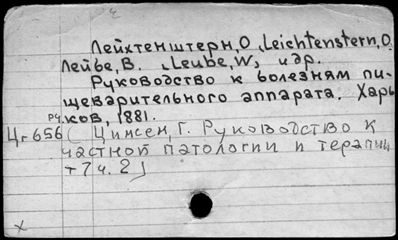 Лейхтенштерн, О. (Leichtenstern, O.
Лейбе, В. (Leube, W.) и др.
Руководство к болезням пи-
щеварительного аппарата. Харь-
ков, 1881.
Цг 656 (Цимсен, Г. Руководство к
частной патологии и терапии
т 7 ч. 2)
x